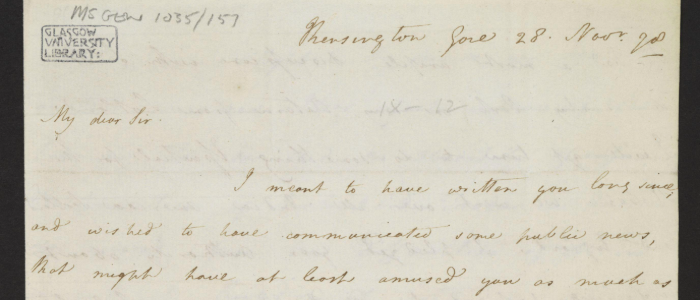 MS GEN 1035/157
GLASGOW
UNIVERSITY
LIBRARY:
Kensington Gore 28. Novr. 98
My dear Sir.
I meant to have written you long since,
and wished to have communicated some public news,
that might have at least amused you as much as